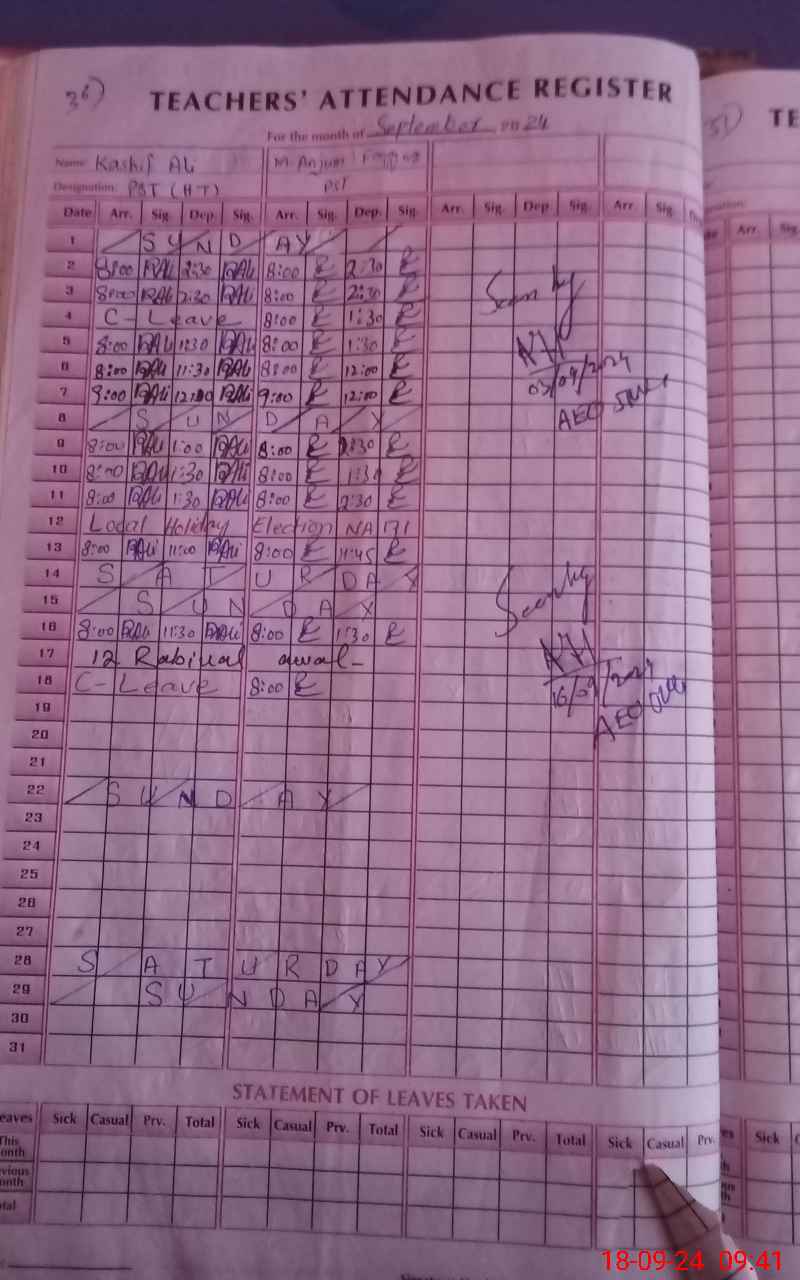 36)
TEACHERS' ATTENDANCE REGISTER
For the month of September 2024
Name: Kashif Ali M. Anjum
Designation: PST (HT) PST
Date Arr. Sig. Dep. Sig. Arr. Sig. Dep. Sig. Arr. Sig. Dep. Sig. Arr. Sig.
1 SUNDAY
2 8:00 RAli 2:30 RAli 8:00 2:30
3 8:00 RAli 2:30 RAli 8:00 2:30
4 C- Leave 8:00 1:30
5 8:00 RAli 1:30 RAli 8:00 1:30
6 8:00 RAli 11:30 RAli 8:00 12:00
7 9:00 RAli 12:00 RAli 9:00 12:00
8 SUNDAY
9 8:00 RAli 1:00 RAli 8:00 2:30
10 8:00 RAli 1:30 RAli 8:00 1:30
11 8:00 RAli 1:30 RAli 8:00 2:30
12 Local Holiday Election NA 171
13 8:00 RAli 11:00 RAli 8:00 11:45
14 SATURDAY
15 SUNDAY
16 8:00 RAli 11:30 RAli 8:00 1:30
17 12 Rabiual awal-
18 C- Leave 8:00
19
20
21
22 SUNDAY
23
24
25
26
27
28 SATURDAY
29 SUNDAY
30
31
Seen by
03/09/2024
AEO
Seen by
16/09/2024
AEO
STATEMENT OF LEAVES TAKEN
eaves Sick Casual Prv. Total Sick Casual Prv. Total Sick Casual Prv. Total Sick Casual Prv.
This
onth
vious
onth
tal
TE
Arr. Sig.
Sick
18-09-24 09:41